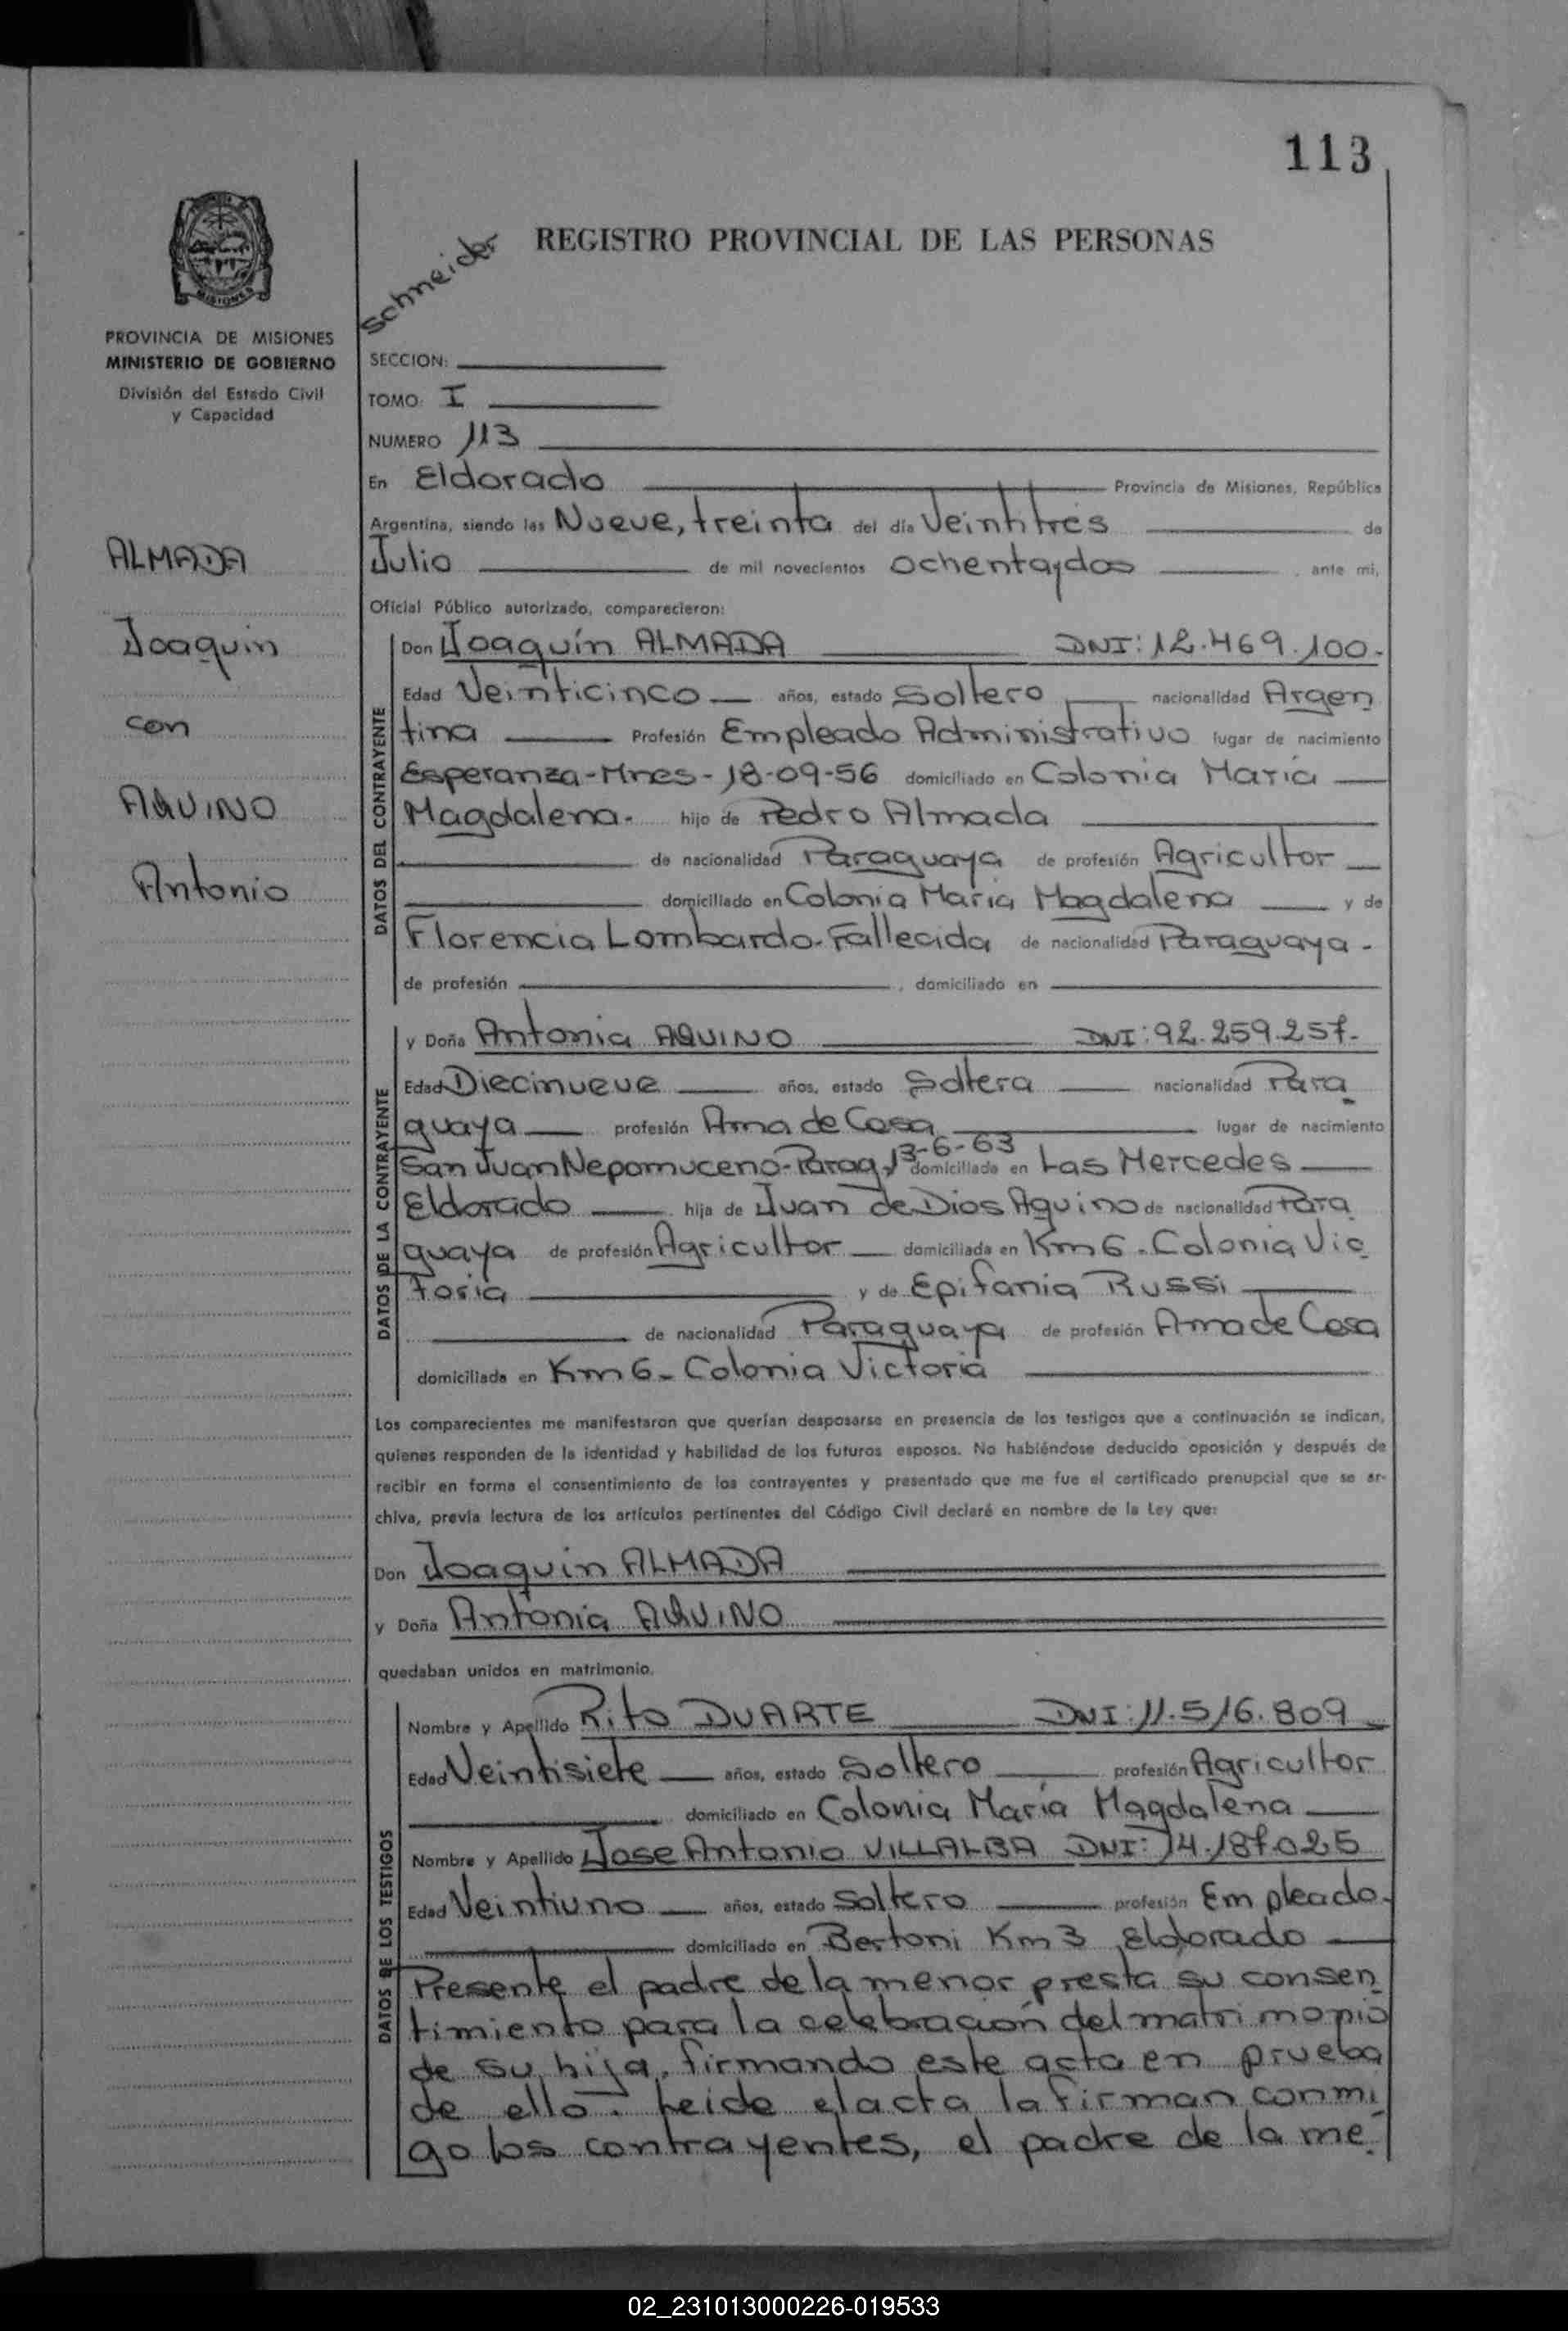 113
REGISTRO PROVINCIAL DE LAS PERSONAS
Schneider
MISIONES
PROVINCIA DE MISIONES
MINISTERIO DE GOBIERNO
División del Estado Civil
y Capacidad
SECCION:
TOMO: I
NUMERO 113
En Eldorado Provincia de Misiones, República
Argentina, siendo las Nueve, treinta del día Veintitrés de
Julio de mil novecientos ochentaydos, ante mi,
Oficial Público autorizado, comparecieron:
ALMADA
Joaquin
con
AQUINO
Antonio
DATOS DEL CONTRAYENTE
Don Joaquín ALMADA DNI: 12.469.100.-
Edad Veinticinco años, estado Soltero nacionalidad Argen
tina Profesión Empleado Administrativo lugar de nacimiento
Esperanza-Mnes-18-09-56 domiciliado en Colonia María
Magdalena. hijo de Pedro Almada
de nacionalidad Paraguaya de profesión Agricultor
domiciliado en Colonia María Magdalena y de
Florencia Lombardo-Fallecida de nacionalidad Paraguaya -
de profesión , domiciliado en
DATOS DE LA CONTRAYENTE
y Doña Antonia AQUINO DNI: 92.259.257.-
Edad Diecinueve años, estado Soltera nacionalidad Para
guaya profesión Ama de Casa lugar de nacimiento
San Juan Nepomuceno-Parag, 13-6-63 domiciliada en Las Mercedes
Eldorado hija de Juan de Dios Aquino de nacionalidad Para
guaya de profesión Agricultor domiciliada en Km 6 - Colonia Vic
toria y de Epifania Russi
de nacionalidad Paraguaya de profesión Ama de Casa
domiciliada en Km 6 - Colonia Victoria
Los comparecientes me manifestaron que querían desposarse en presencia de los testigos que a continuación se indican,
quienes responden de la identidad y habilidad de los futuros esposos. No habiéndose deducido oposición y después de
recibir en forma el consentimiento de los contrayentes y presentado que me fue el certificado prenupcial que se ar-
chiva, previa lectura de los artículos pertinentes del Código Civil declaré en nombre de la Ley que:
Don Joaquin ALMADA
y Doña Antonia AQUINO
quedaban unidos en matrimonio.
DATOS DE LOS TESTIGOS
Nombre y Apellido Rito DUARTE DNI: 11.516.809
Edad Veintisiete años, estado Soltero profesión Agricultor
domiciliado en Colonia María Magdalena
Nombre y Apellido Jose Antonio VILLALBA DNI: 14.187.025
Edad Veintiuno años, estado Soltero profesión Empleado.
domiciliado en Bertoni Km 3 Eldorado
Presente el padre de la menor presta su consen
timiento para la celebración del matrimonio
de su hija, firmando este acta en prueba
de ello. Leida el acta la firman conmi
go los contrayentes, el padre de la me
02_231013000226-019533